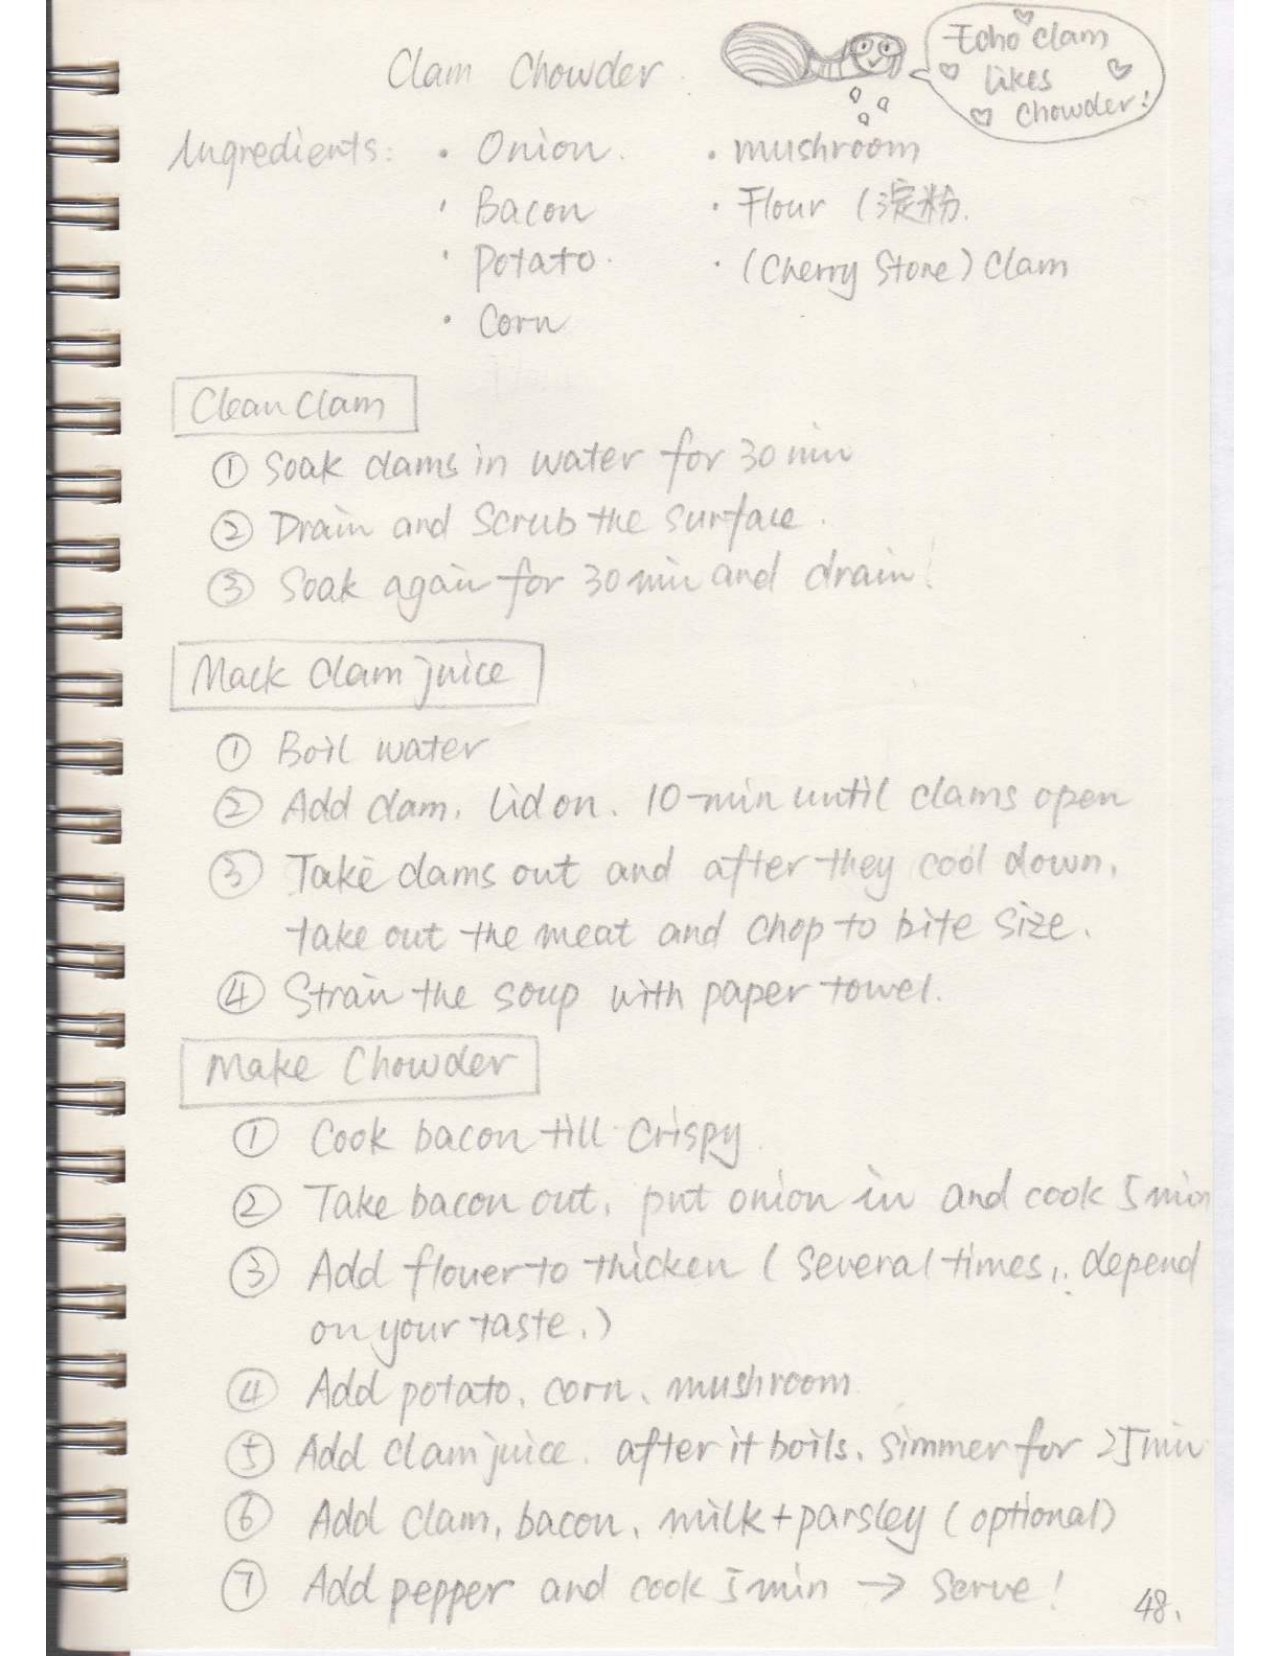 Clam Chowder
Echo clam
likes
chowder!
Ingredients: · Onion. · mushroom
· Bacon · Flour (淀粉.
· Potato. · (Cherry Stone) Clam
· Corn
Clean Clam
① Soak clams in water for 30 min
② Drain and Scrub the surface.
③ Soak again for 30 min and drain!
Mack Clam juice
① Boil water
② Add clam. Lid on. 10-min until clams open
③ Take clams out and after they cool down,
take out the meat and chop to bite size.
④ Strain the soup with paper towel.
Make Chowder
① Cook bacon till crispy.
② Take bacon out, put onion in and cook 5 min
③ Add flouer to thicken (several times, depend
on your taste.)
④ Add potato, corn, mushroom
⑤ Add clam juice. after it boils, simmer for 25 min
⑥ Add clam, bacon, milk + parsley (optional)
⑦ Add pepper and cook 5 min → Serve!
48.